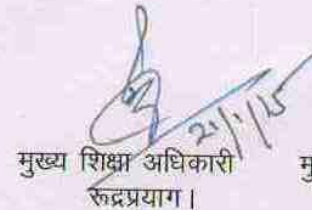 21/1/25
मुख्य शिक्षा अधिकारी मु
रूद्रप्रयाग।